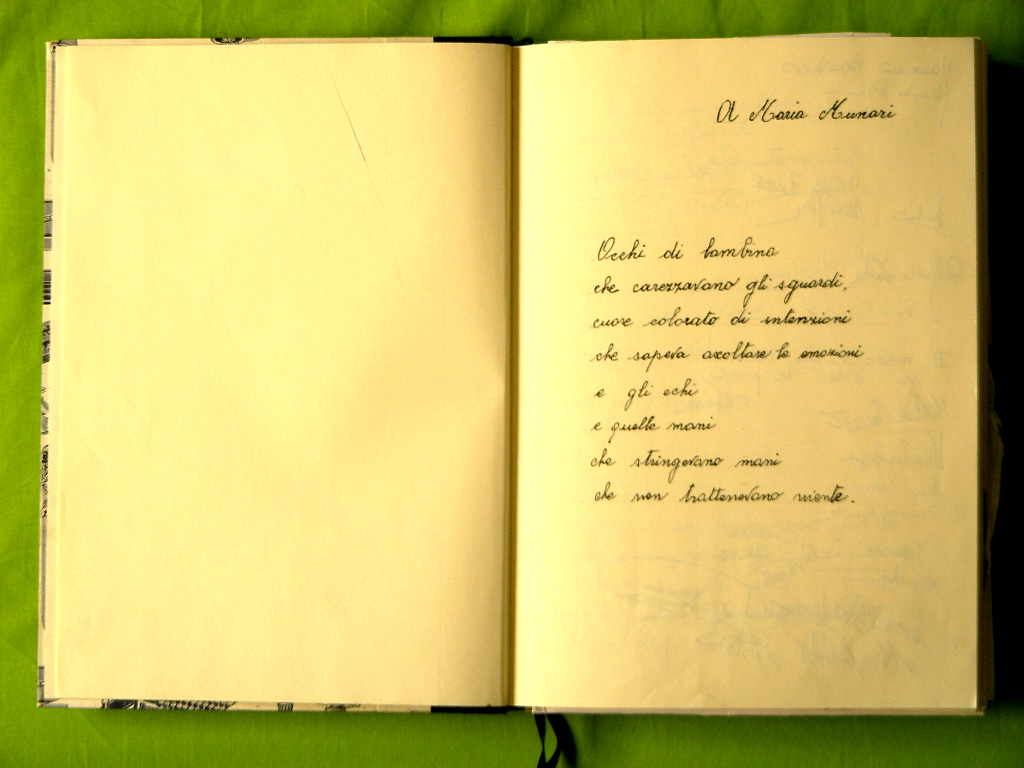 A Maria Munari
Occhi di bambina
che carezzavano gli sguardi,
cuore colorato di intenzioni
che sapeva ascoltare le emozioni
e gli echi
e quelle mani
che stringevano mani
che non trattenevano niente.